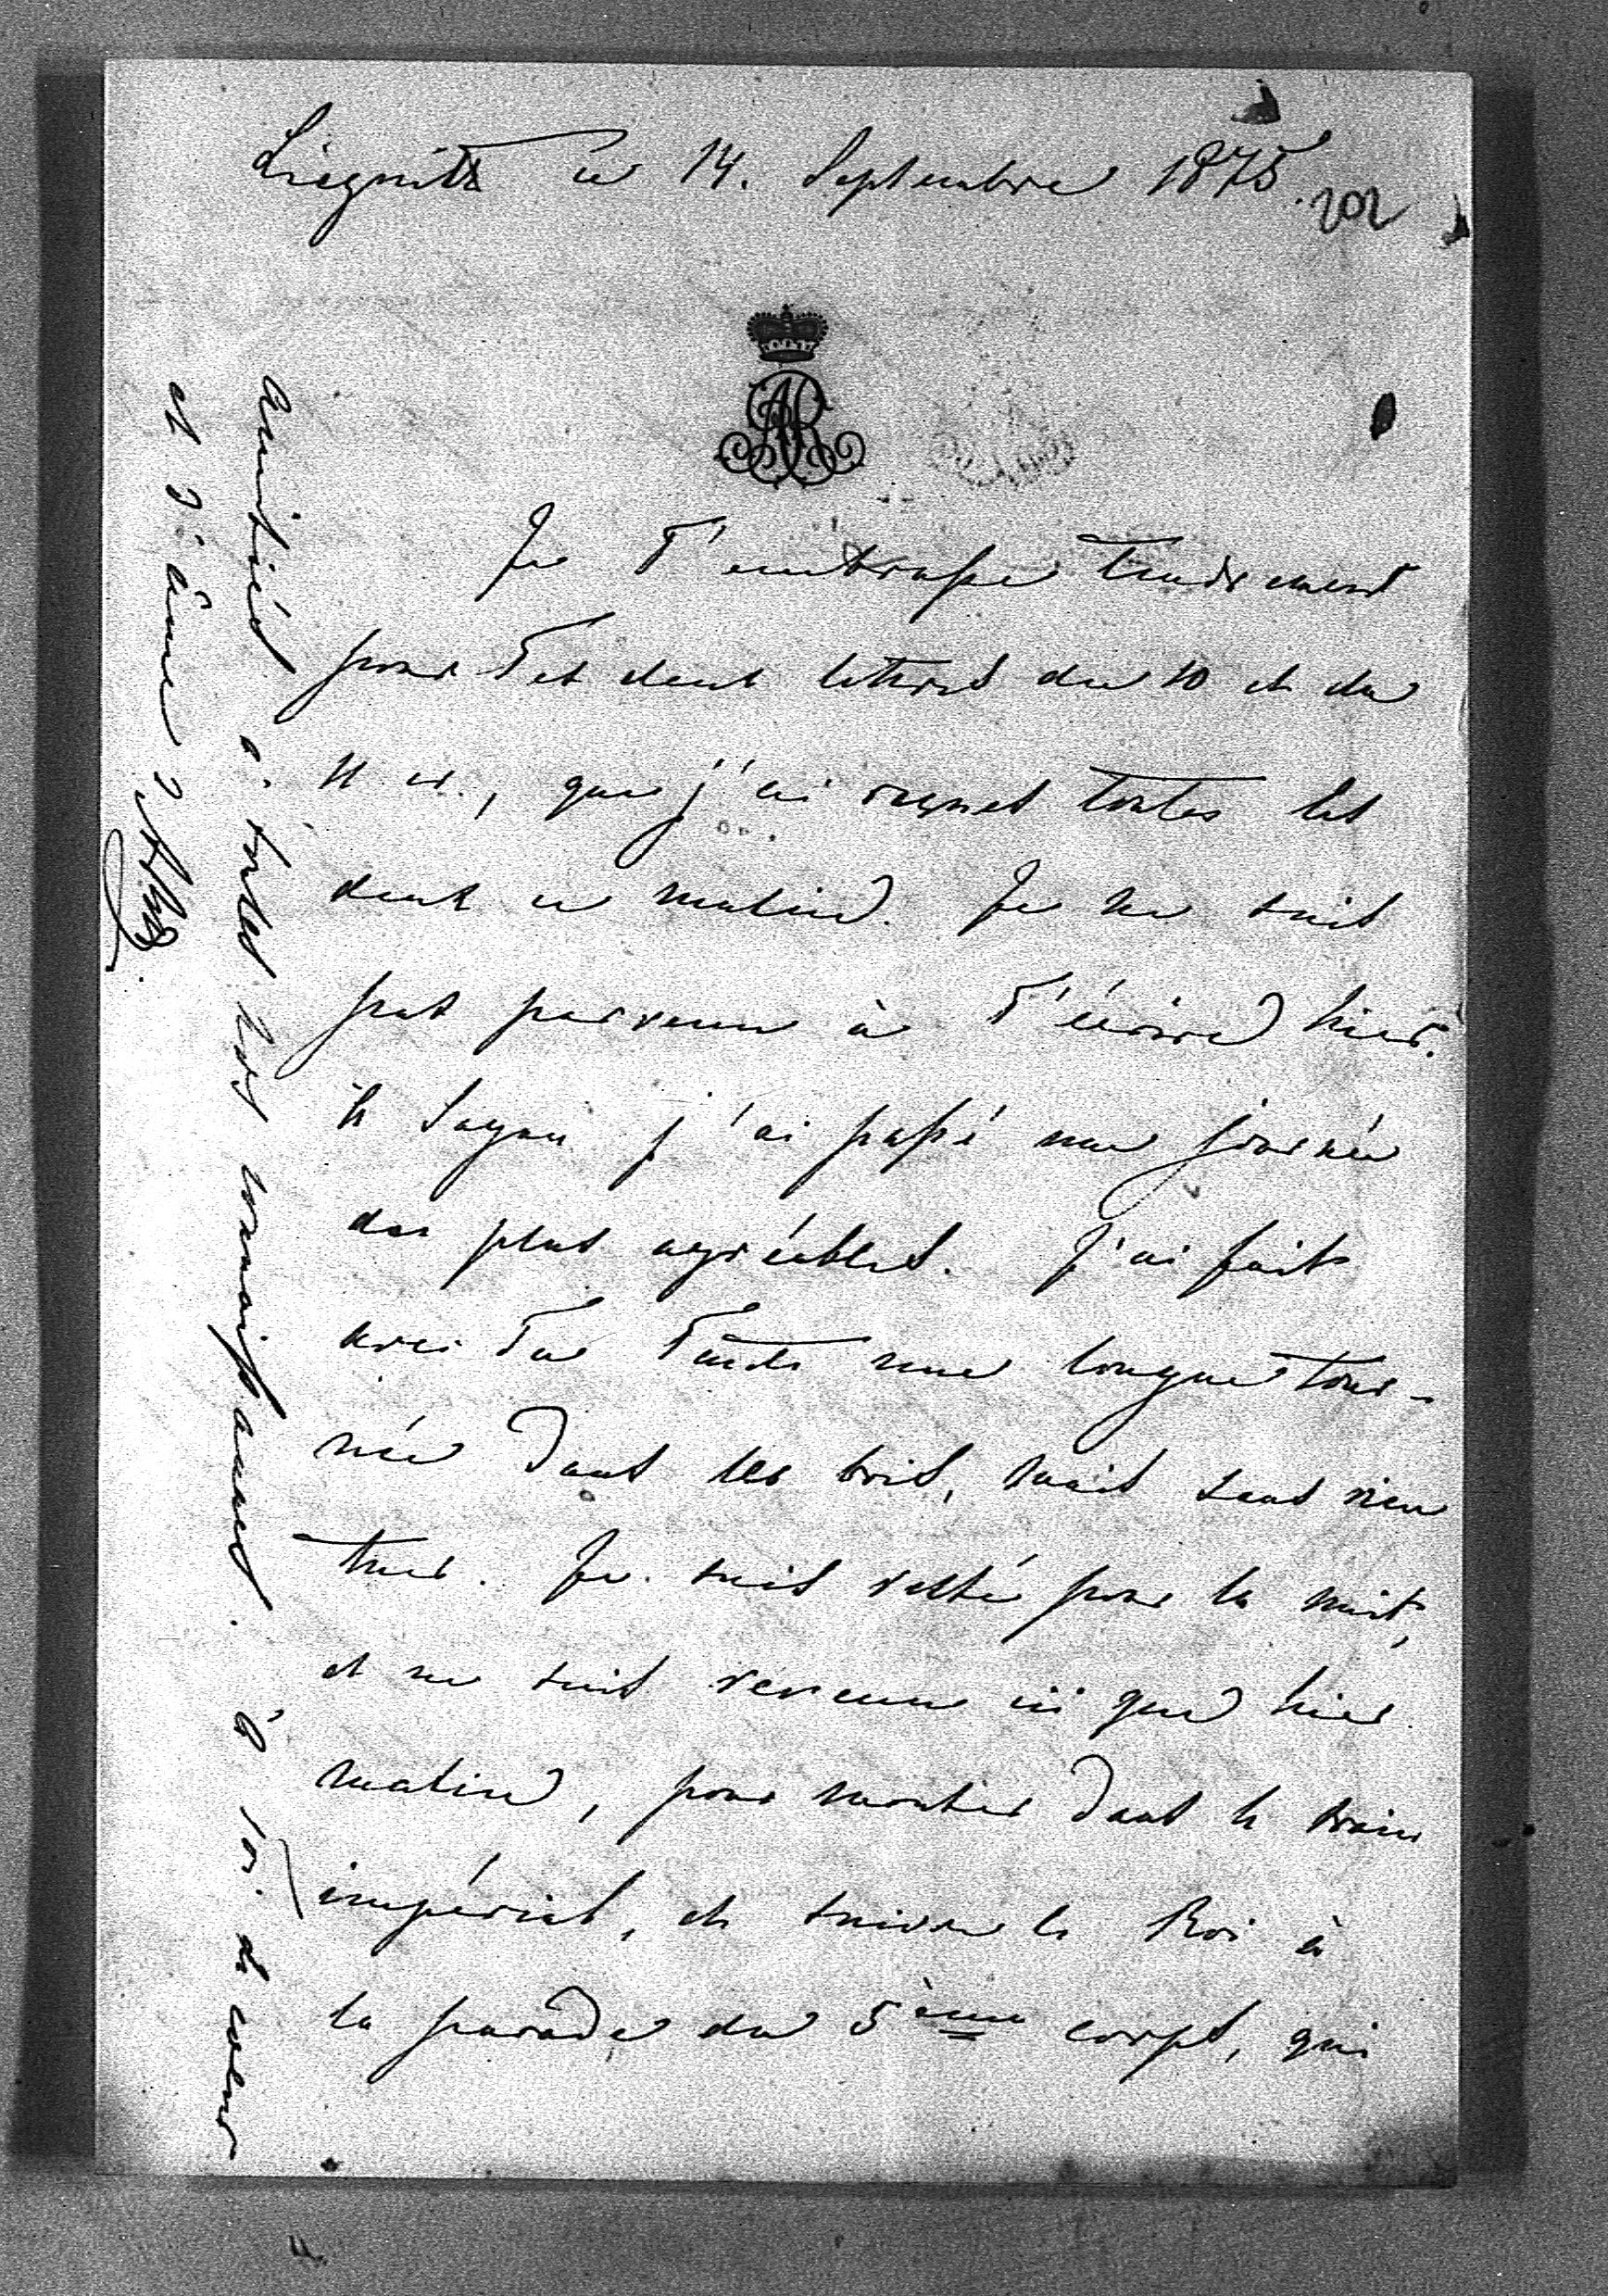 Liegnitz ce 14. Septembre 1875.
202
AR
Je T'embrasse tendrement
pour Tes deux lettres du 10 et du
11 cr., que j'ai reçues toutes les
deux ce matin. Je ne suis
pas parvenu à T'écrire hier.
A Sagan j'ai passé une journée
des plus agréables. J'ai fait
avec Ta Tante une longue tour-
née dans les bois, mais sans rien
tuer. Je suis resté pour la nuit,
et ne suis revenu ici que hier
matin, pour monter dans le train
impérial, et suivre le Roi à
la parade du 5ème corps, qui
amitiés à toutes nos connaissances. à Toi de coeur
et d'âme